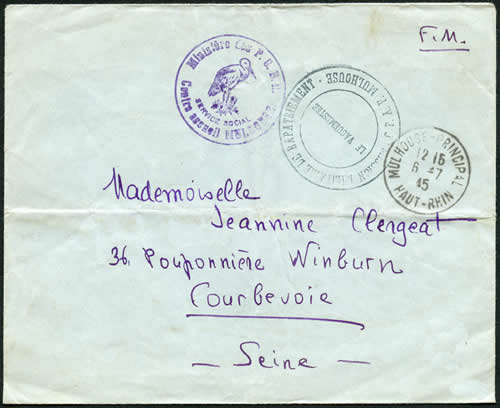 F.M.
Ministère des P. G. R. D.
SERVICE SOCIAL
Centre
MULHOUSE
DE RAPATRIEMENT - MULHOUSE
LE VAGUEMESTRE
MULHOUSE-PRINCIPAL
12 15
6 -7
45
HAUT-RHIN
Mademoiselle
Jeannine Clergeat
36. Pouponnière Winburn
Courbevoie
- Seine -